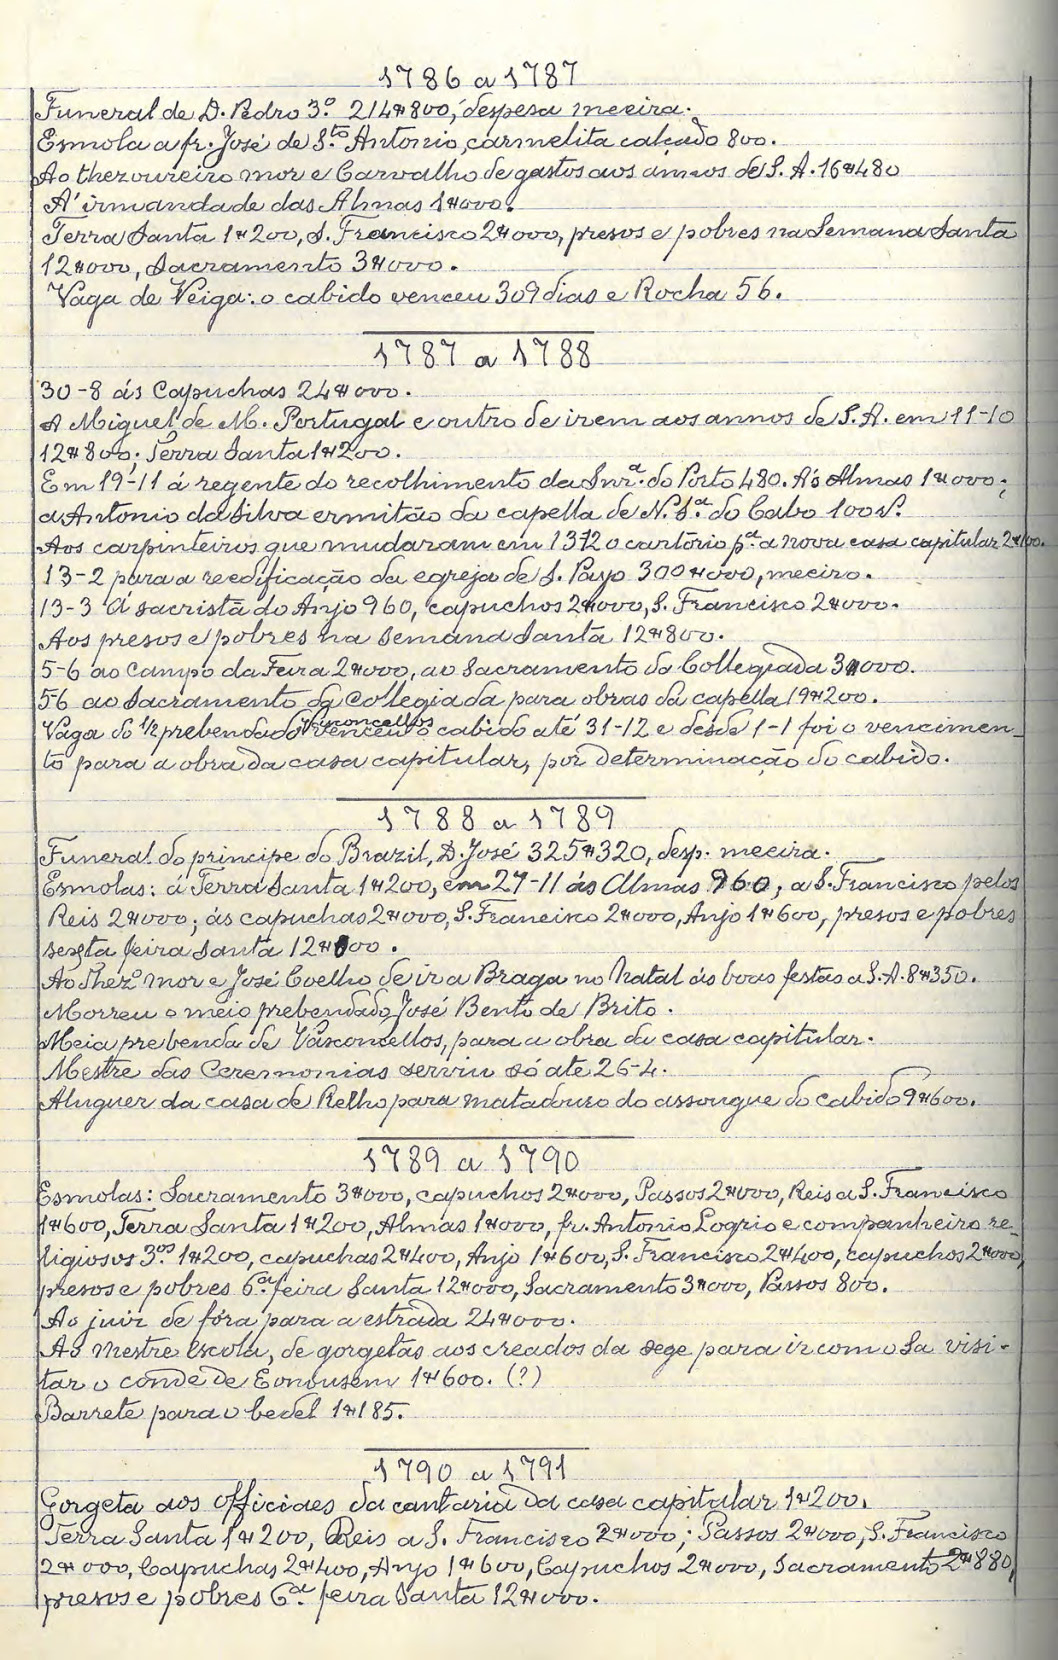 1786 a 1787
Funeral de D. Pedro 3º 214#800, despesa meeira.
Esmola a fr. José de S.to Antonio, carmelita calçado 800.
Ao thezoureiro mor e Carvalho de gastos aos annos de S. A. 16#480
A' irmandade das Almas 1#000.
Terra Santa 1#200, S. Francisco 2#000, presos e pobres na Semana Santa
12#000, Sacramento 3#000.
Vaga de Veiga: o cabido venceu 309 dias e Rocha 56.
1787 a 1788
30-8 ás Capuchas 24#000.
A Miguel de M. Portugal e outro de irem aos annos de S. A. em 11-10
12#800; Terra Santa 1#200.
Em 19-11 á regente do recolhimento da Snr.a do Porto 480. Ás Almas 1#000;
a Antonio da Silva ermitão da capella de N. S.a do Cabo 100 r.s
Aos carpinteiros que mudaram em 1372 o cartório p.a a nova casa capitular 2#100.
13-2 para a reedificação da egreja de S. Payo 300#000, meeiro.
13-3 Á sacristã do Anjo 960, capuchos 2#000, S. Francisco 2#000.
Aos presos e pobres na semana Santa 12#800.
5-6 ao Campo da Feira 2#000, ao Sacramento da Collegiada 3#000.
56 ao Sacramento da Collegiada para obras da capella 19#200.
Vaga do 1/2 prebendado Vasconcellos venceu o cabido até 31-12 e desde 1-1 foi o vencimen-
to para a obra da casa capitular, por determinação do cabido.
1788 a 1789
Funeral do principe do Brazil, D. José 325#320, desp. meeira.
Esmolas: á Terra Santa 1#200, em 27-11 ás Almas 960, a S. Francisco pelos
Reis 2#000; ás capuchas 2#000, S. Francisco 2#000, Anjo 1#600, presos e pobres
sexta feira Santa 12#800.
Ao Thez.o mor e José Coelho de ir a Braga no Natal ás boas festas a S. A. 8#350.
Morreu o meio prebendado José Bento de Brito.
Meia prebenda de Vasconcellos, para a obra da casa capitular.
Mestre das Ceremonias serviu só até 26-4.
Aluguer da casa de Relho para matadouro do assougue do cabido 9#600.
1789 a 1790
Esmolas: Sacramento 3#000, capuchos 2#000, Passos 2#000, Reis a S. Francisco
1#600, Terra Santa 1#200, Almas 1#000, fr. Antonio Logrio e companheiro re-
ligiosos 3.os 1#200, capuchas 2#400, Anjo 1#600, S. Francisco 2#400, capuchos 2#000,
presos e pobres 6.a feira Santa 12#000, Sacramento 3#000, Passos 800.
Ao juiz de fóra para a estrada 24#000.
Ao Mestre Escola, de gorgetas aos creados da sege para ir com o Sa visi-
tar o conde de Eonousem 1#600. (?)
Barrete para o bedel 1#185.
1790 a 1791
Gorgeta aos officiaes da cantaria da casa capitular 1#200.
Terra Santa 1#200, Reis a S. Francisco 2#000; Passos 2#000, S. Francisco
2#000, Capuchas 2#400, Anjo 1#600, Capuchos 2#000, Sacramento 2#880,
presos e pobres 6.a feira Santa 12#000.